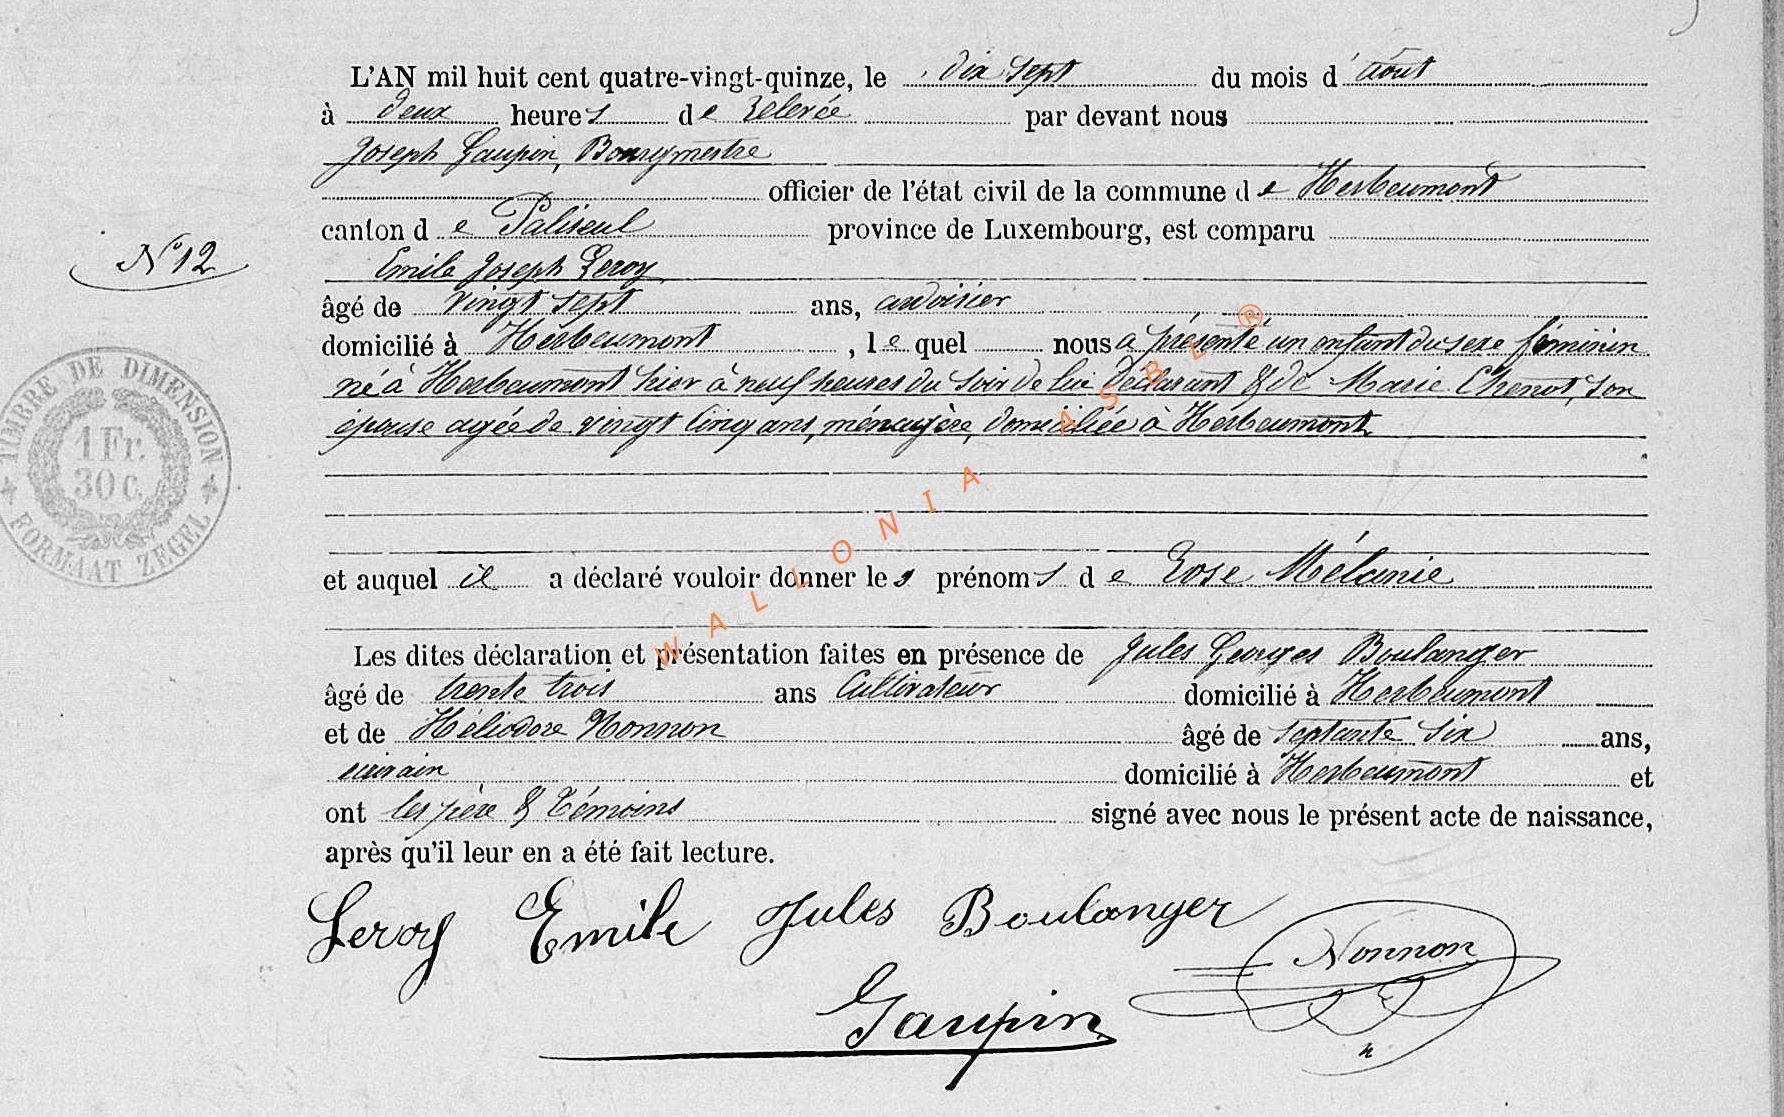 L'AN mil huit cent quatre-vingt-quinze, le dix sept du mois d'août
à deux heures de relevée par devant nous
Joseph Gaupin, Bourgmestre
officier de l'état civil de la commune de Herbeumont
canton de Paliseul province de Luxembourg, est comparu
N° 12
Emile Joseph Leroy
âgé de vingt sept ans, ardoisier
domicilié à Herbeumont, lequel nous a présenté un enfant du sexe féminin
né à Herbeumont hier à neuf heures du soir de lui déclarant & de Marie Chenot, son
épouse agée de vingt cinq ans, ménagère, domiciliée à Herbeumont
TIMBRE DE DIMENSION
1 Fr.
30 C.
FORMAAT ZEGEL
WALLONIA ASBL ®
et auquel il a déclaré vouloir donner les prénoms de Rose Mélanie
Les dites déclaration et présentation faites en présence de Jules Georges Boulanger
âgé de trente trois ans Cultivateur domicilié à Herbeumont
et de Héliodore Nonnon âgé de septante six ans,
écrivain domicilié à Herbeumont et
ont les père & témoins signé avec nous le présent acte de naissance,
après qu'il leur en a été fait lecture.
Leroy Emile Jules Boulanger
Nonnon
Gaupin